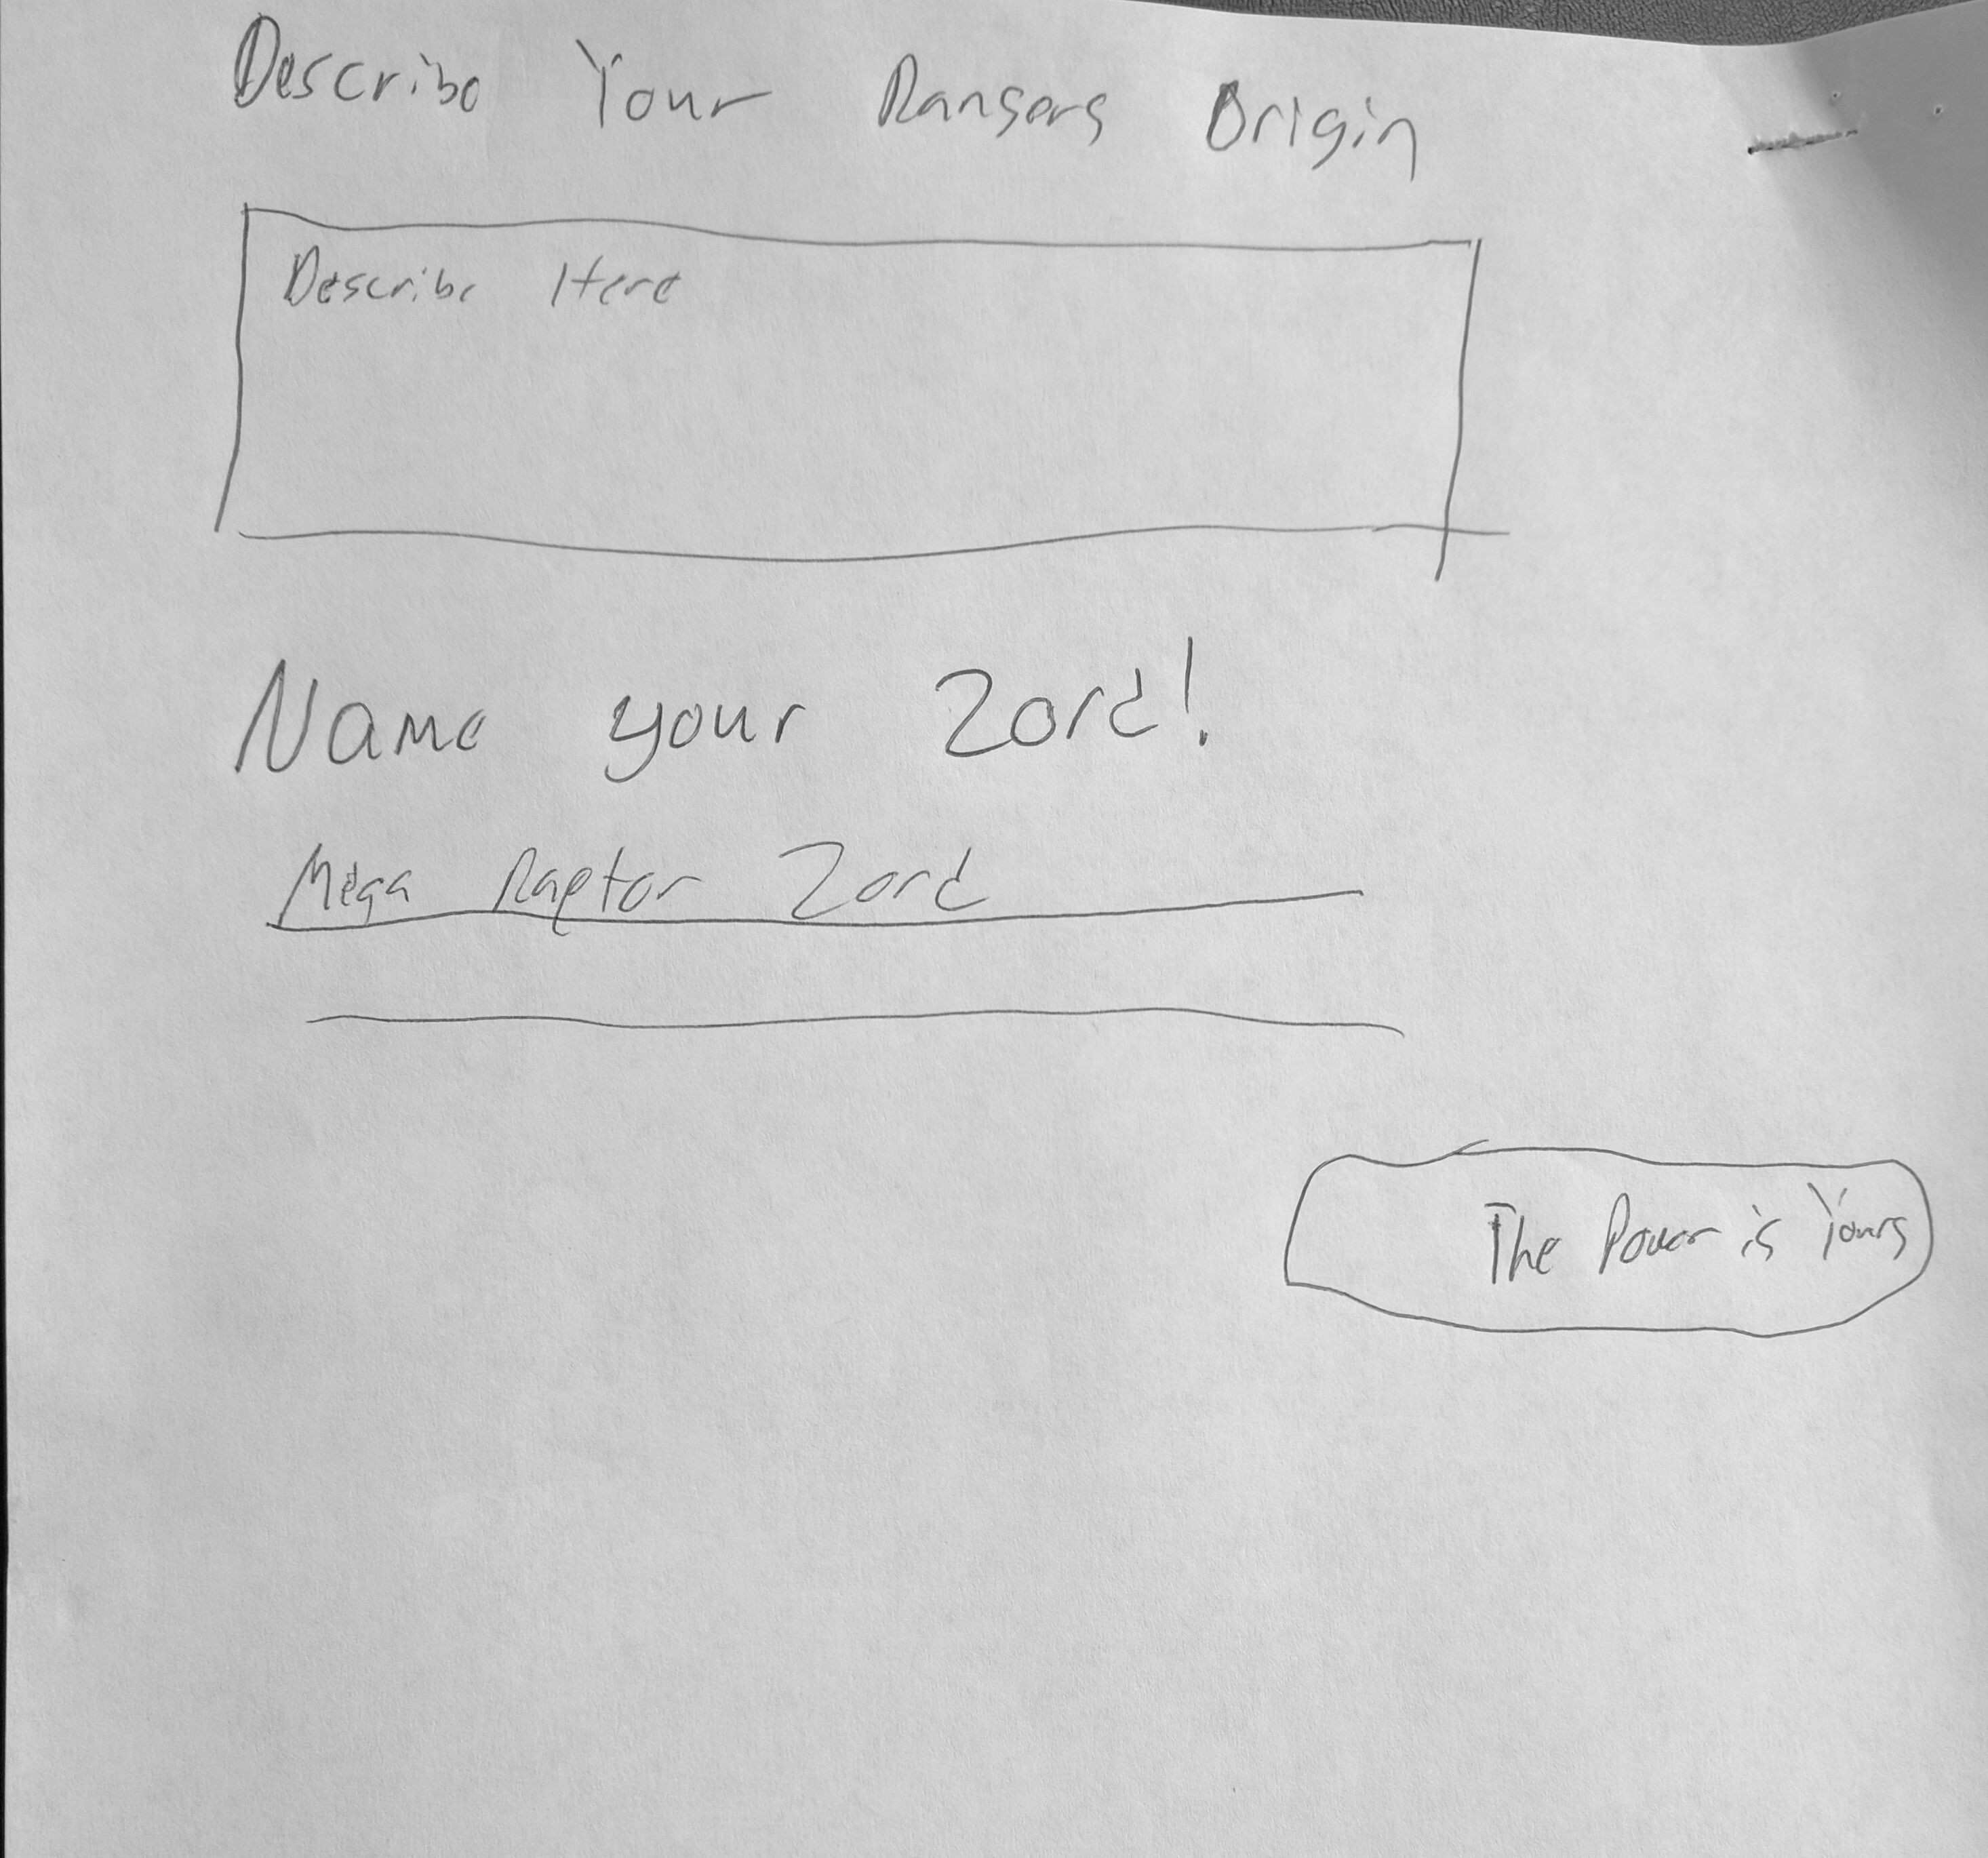 Describe Your Rangers Origin
Describe Here
Name your Zord!
Mega Raptor Zord
The Power is Yours